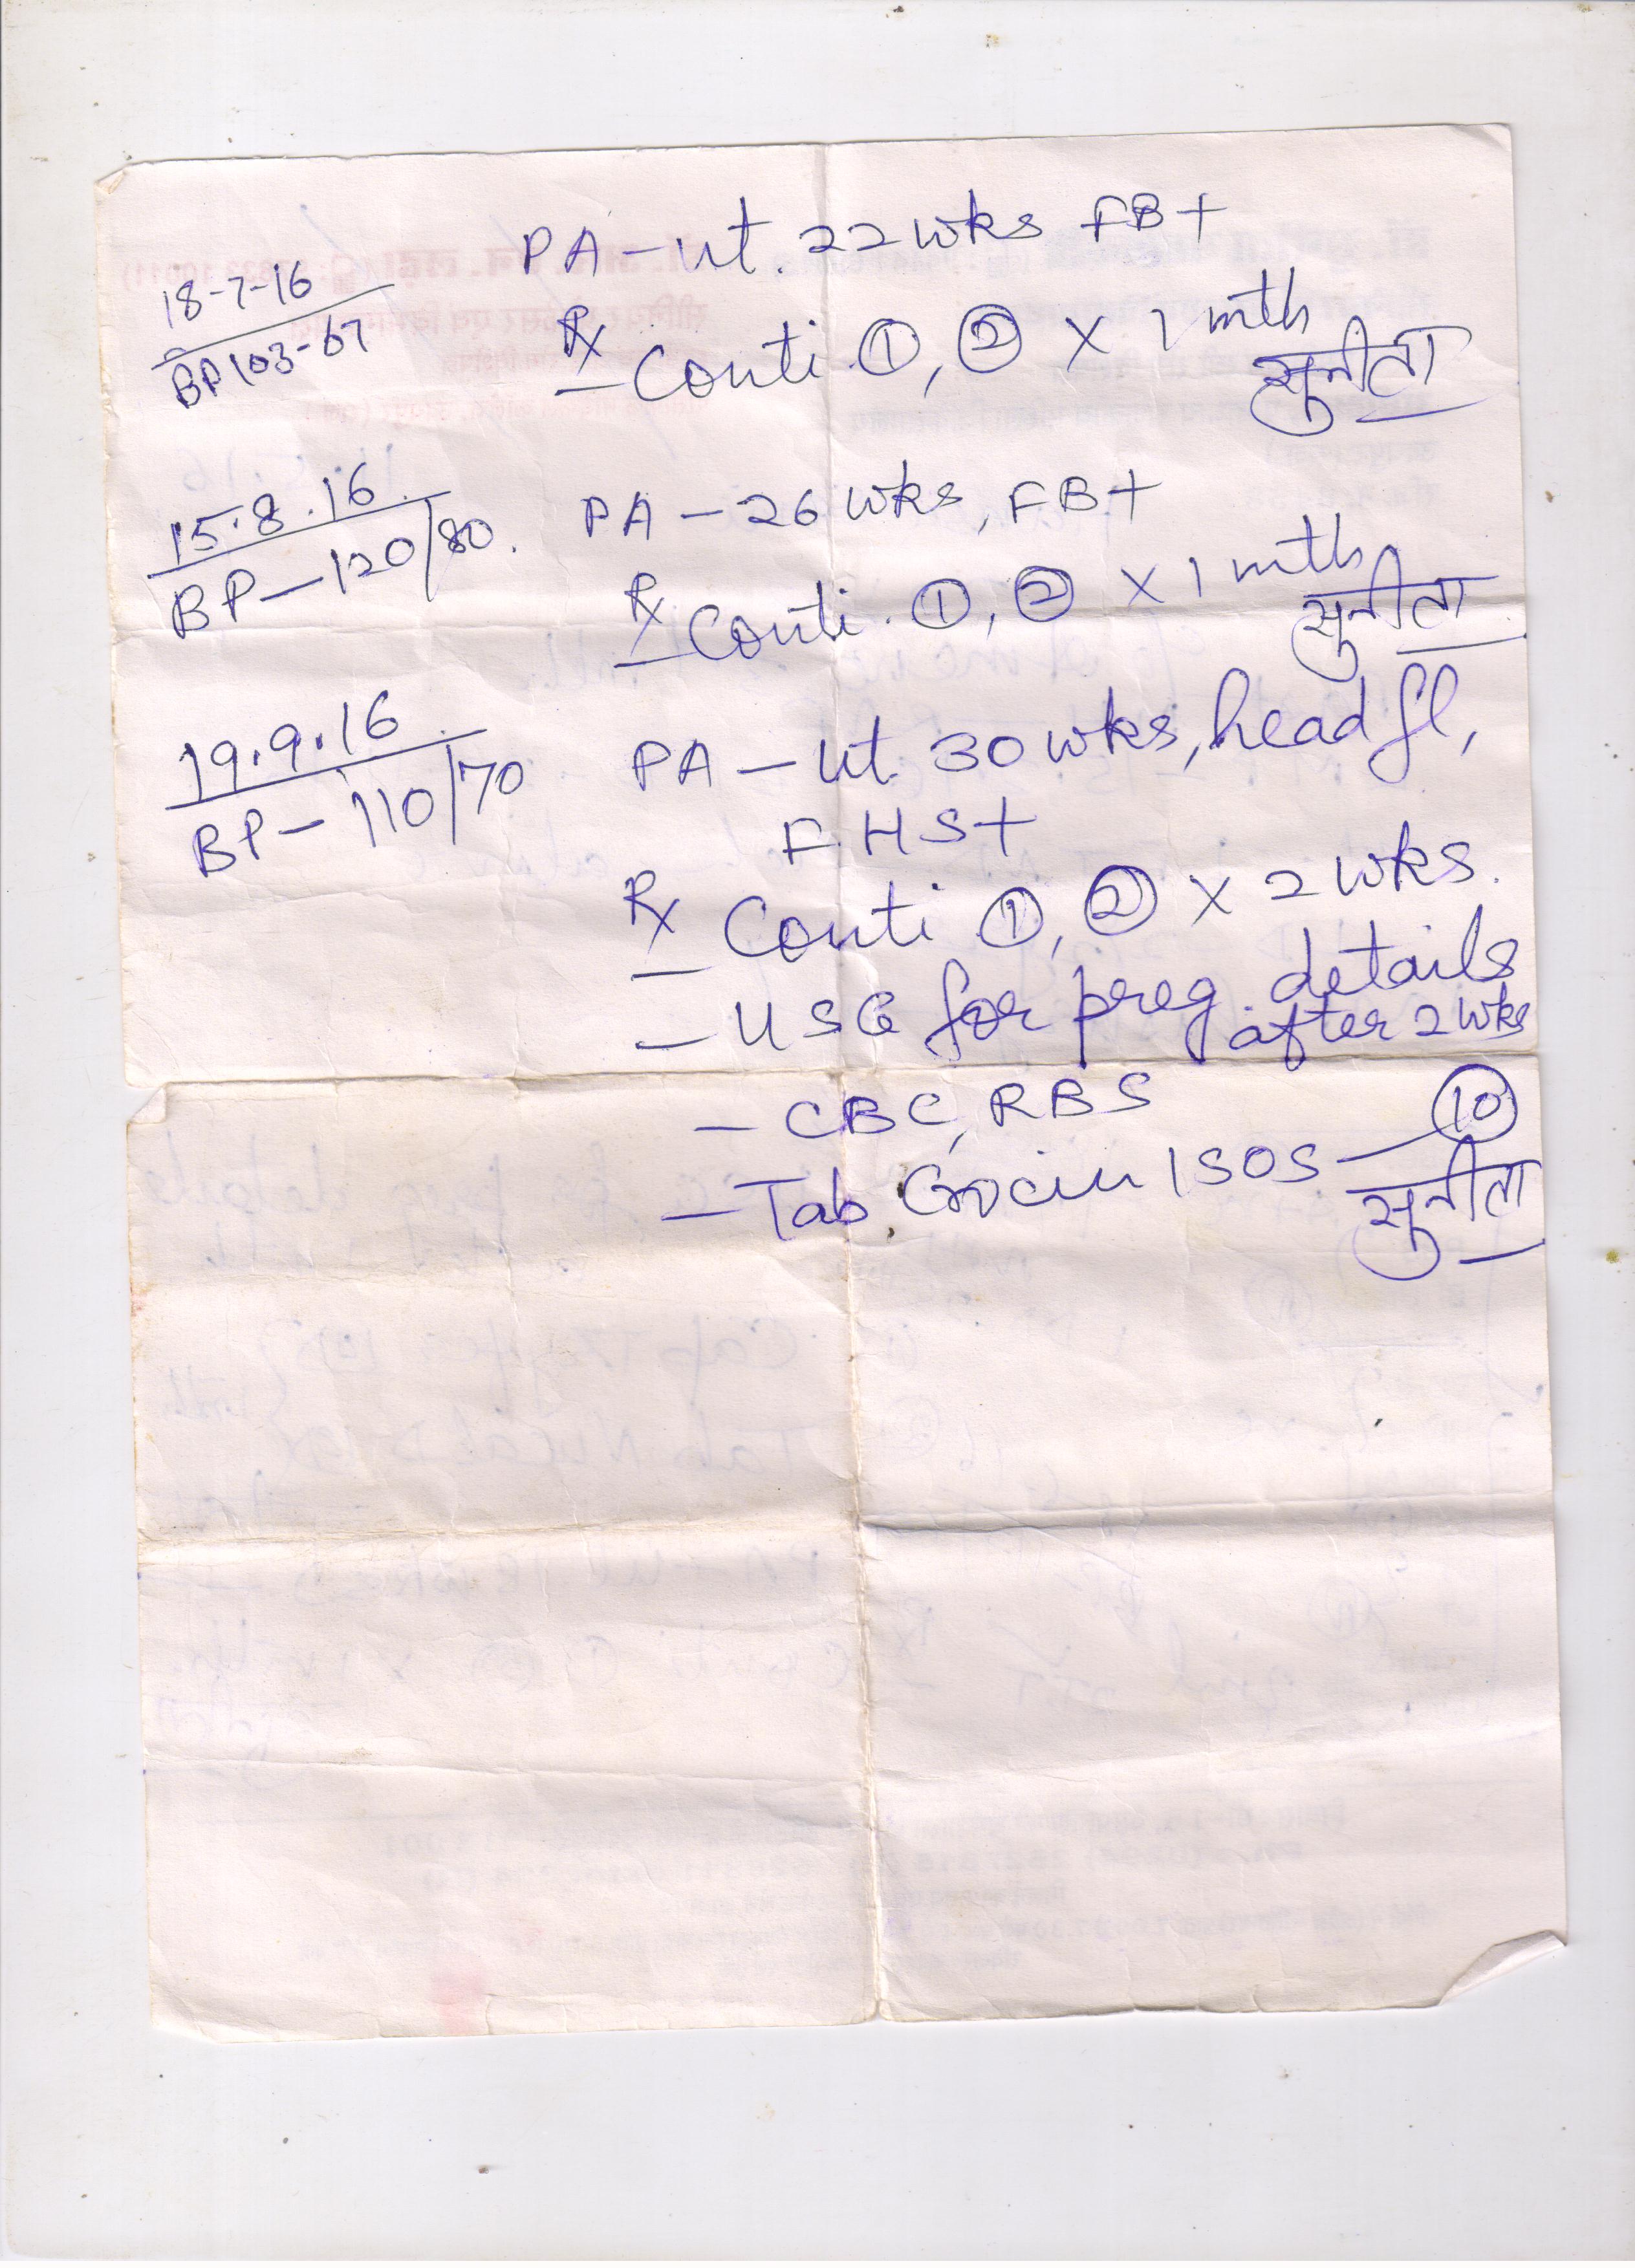 PA - ut. 22 wks FB+
18-7-16
BP 103-67
Rx
- Conti ①, ② x 1 mth
सुनीता
15.8.16
BP - 120/80.
PA - 26 wks, FB+
Rx
- Conti. ①, ② x 1 mth
सुनीता
19.9.16
BP - 110/70
PA - ut. 30 wks, head fl,
FHS+
Rx
- Conti ①, ② x 2 wks.
- USG for preg. details
after 2 wks
- CBC, RBS
- Tab Crocin 1 SOS - ⑩
सुनीता